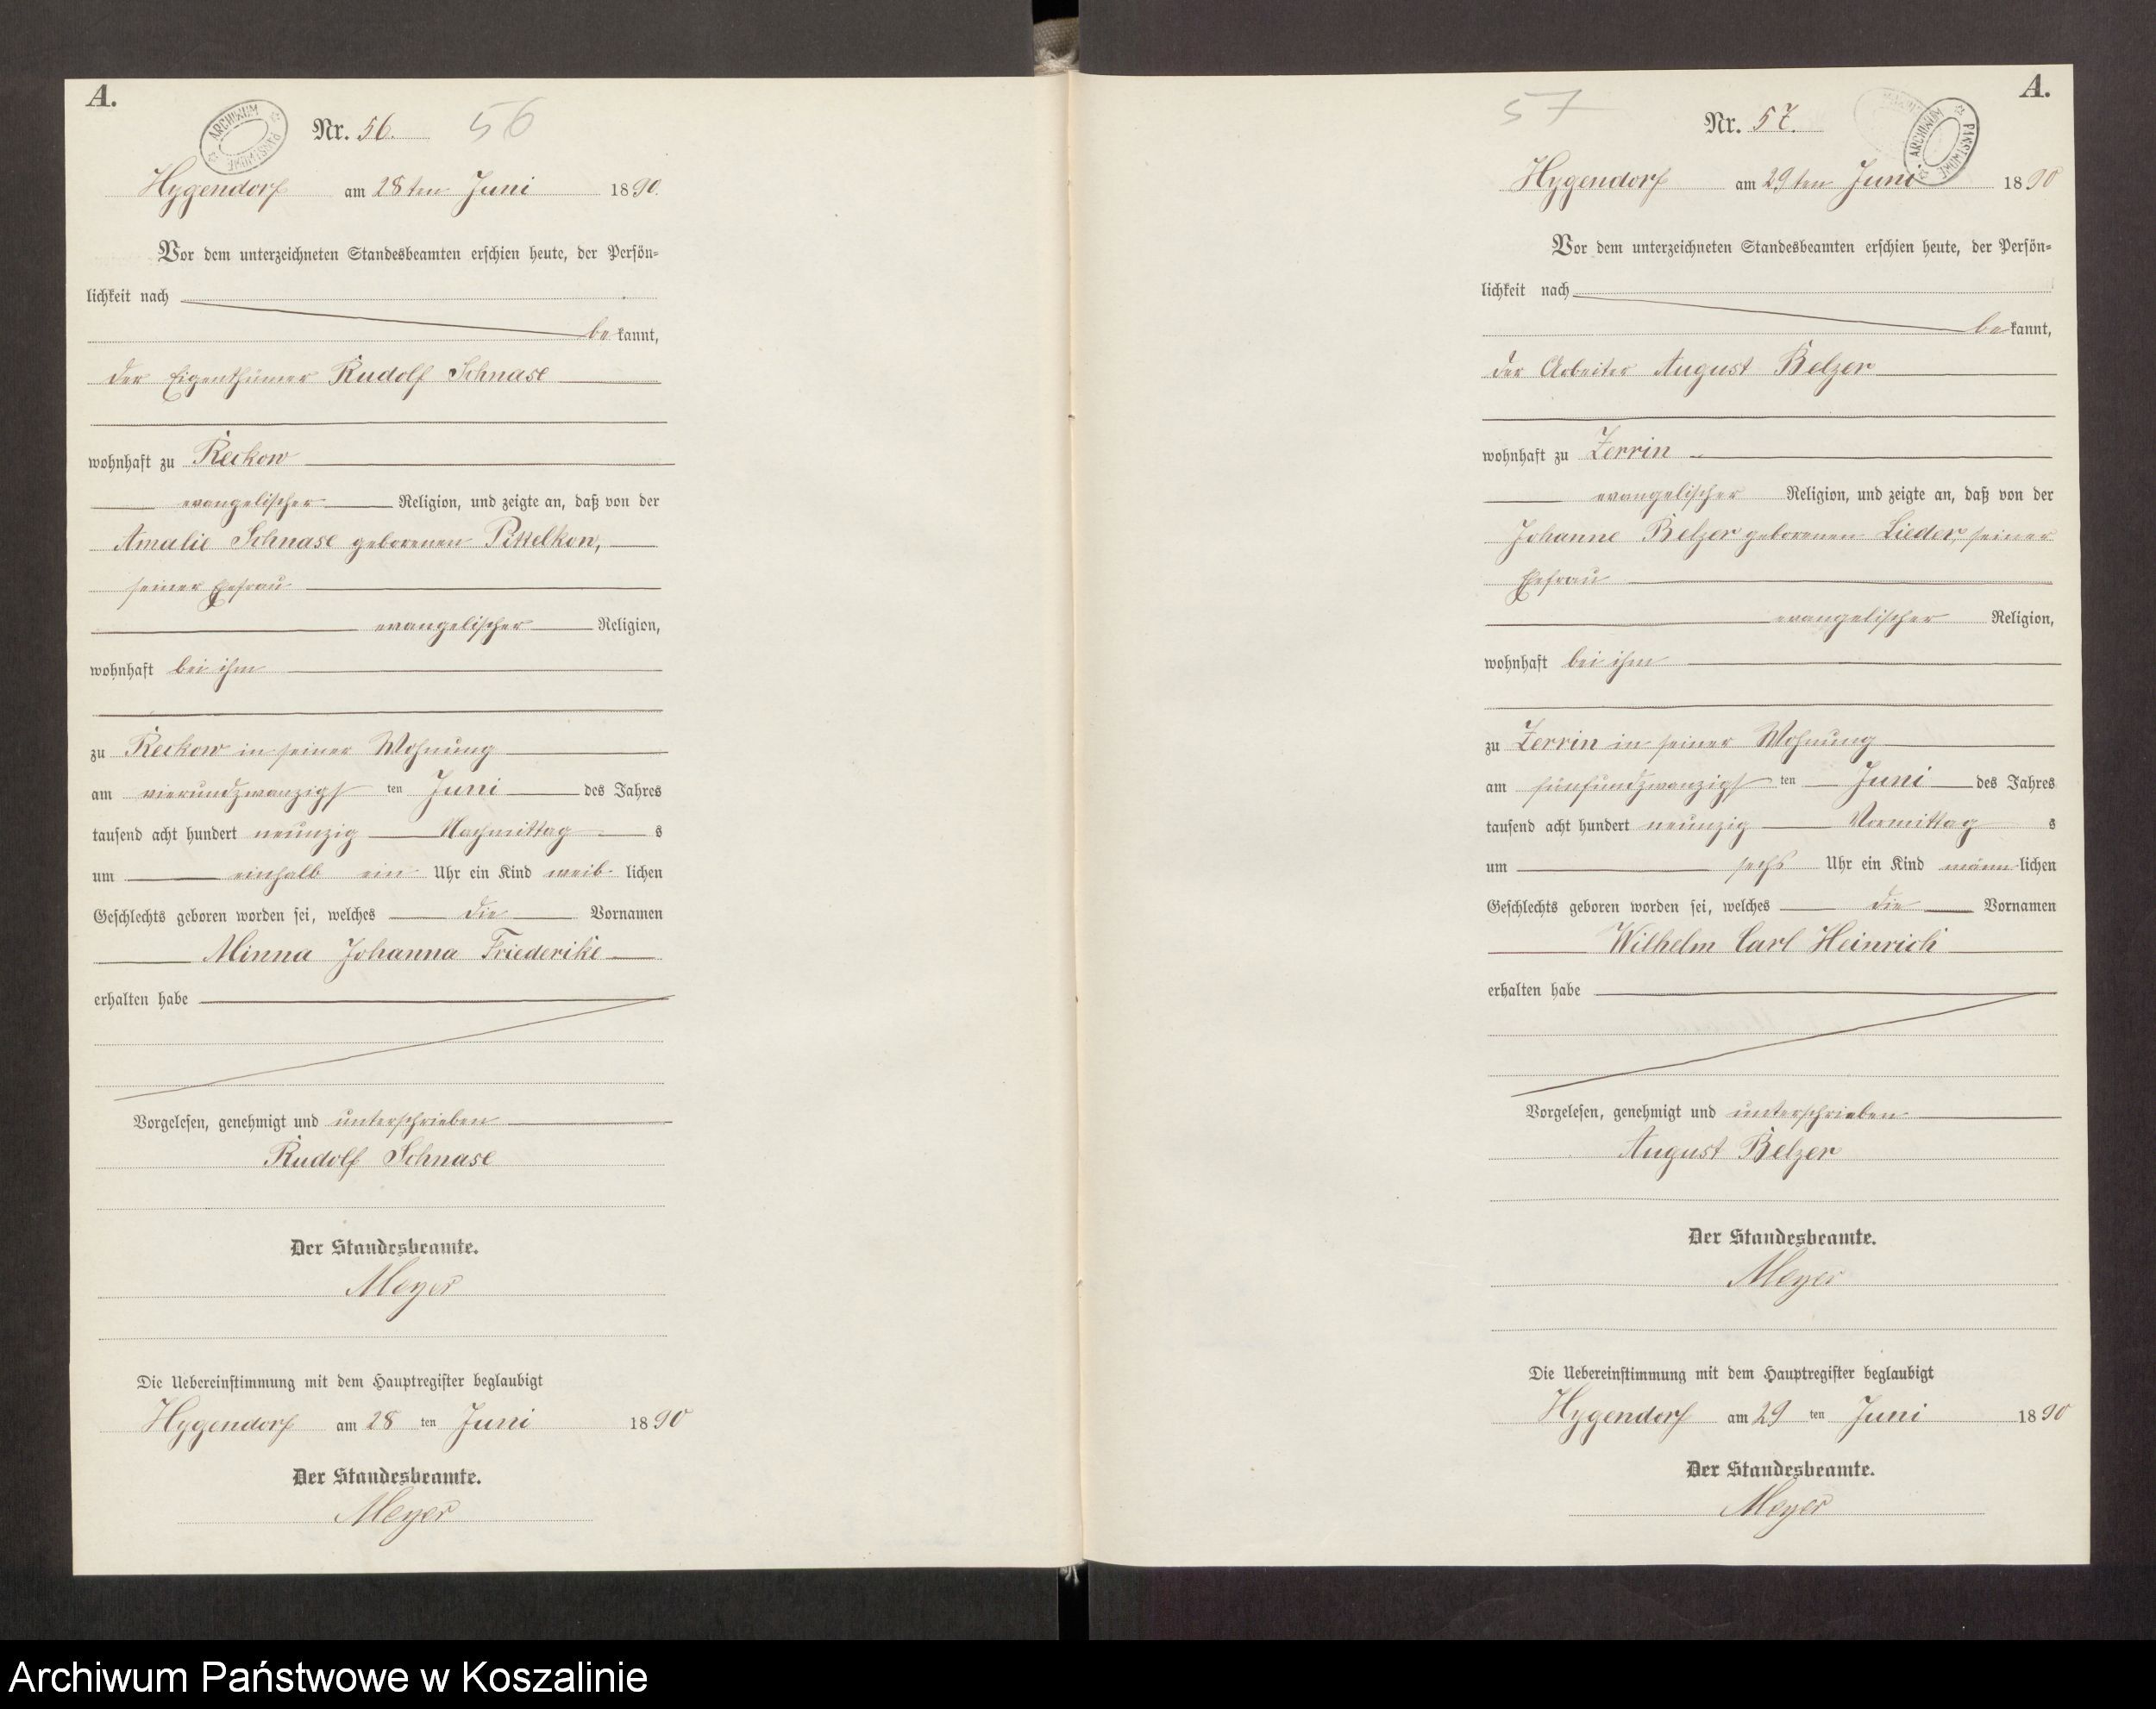 A.
ARCHIWUM PAŃSTWOWE
Nr. 56. 56
Hygendorf am 28ten Juni 1890.
Vor dem unterzeichneten Standesbeamten erschien heute, der Persön-
lichkeit nach
be kannt,
der Eigenthümer Rudolf Schnase
wohnhaft zu Reckow
evangelischer Religion, und zeigte an, daß von der
Amalie Schnase geborenen Pittelkow,
seiner Ehefrau
evangelischer Religion,
wohnhaft bei ihm
zu Reckow in seiner Wohnung
am vierundzwanzigs ten Juni des Jahres
tausend acht hundert neunzig Nachmittag s
um einhalb ein Uhr ein Kind weib lichen
Geschlechts geboren worden sei, welches die Vornamen
Minna Johanna Friederike
erhalten habe
Vorgelesen, genehmigt und unterschrieben
Rudolf Schnase
Der Standesbeamte.
Meyer
Die Uebereinstimmung mit dem Hauptregister beglaubigt
Hygendorf am 28 ten Juni 1890
Der Standesbeamte.
Meyer
A.
57 Nr. 57.
ARCHIWUM PAŃSTWOWE
Hygendorf am 29ten Juni 1890
Vor dem unterzeichneten Standesbeamten erschien heute, der Persön-
lichkeit nach
be kannt,
der Arbeiter August Belzer
wohnhaft zu Zerrin
evangelischer Religion, und zeigte an, daß von der
Johanne Belzer geborenen Lieder, seiner
Ehefrau
evangelischer Religion,
wohnhaft bei ihm
zu Zerrin in seiner Wohnung
am fünfundzwanzigs ten Juni des Jahres
tausend acht hundert neunzig Vormittag s
um sechs Uhr ein Kind männ lichen
Geschlechts geboren worden sei, welches die Vornamen
Wilhelm Carl Heinrich
erhalten habe
Vorgelesen, genehmigt und unterschrieben
August Belzer
Der Standesbeamte.
Meyer
Die Uebereinstimmung mit dem Hauptregister beglaubigt
Hygendorf am 29 ten Juni 1890
Der Standesbeamte.
Meyer
Archiwum Państwowe w Koszalinie